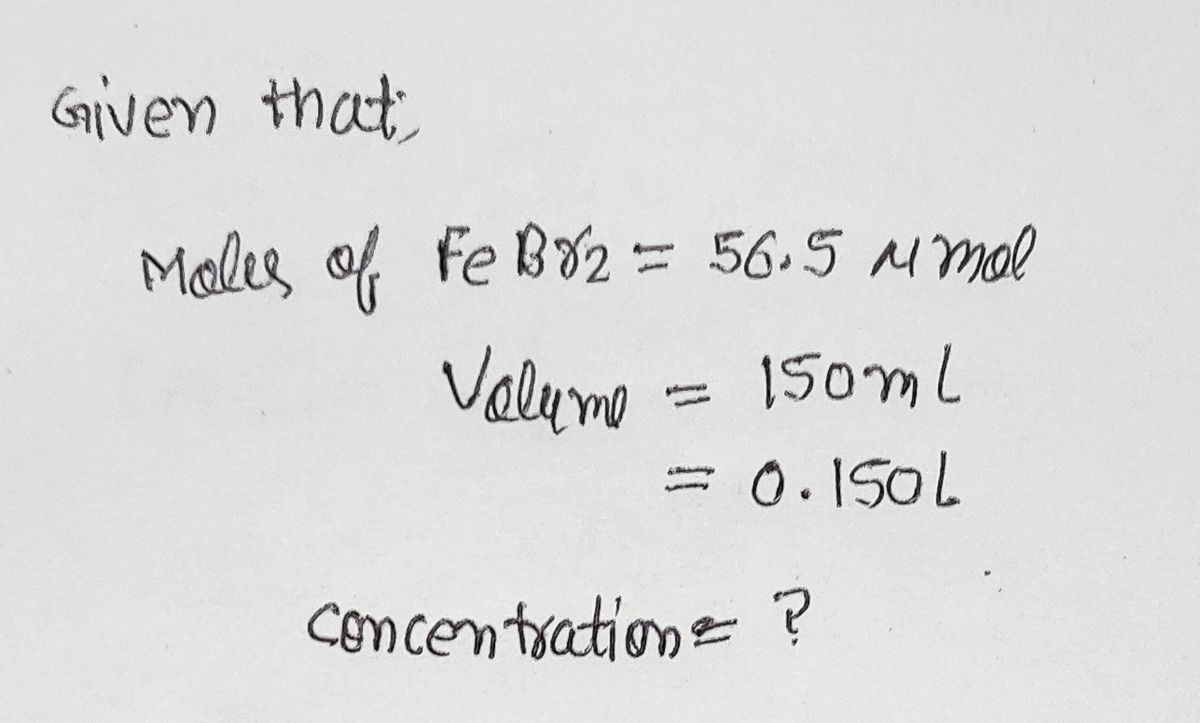 Given that,
Moles of FeBr2 = 56.5 μmol
Volume = 150mL
= 0.150L
concentration = ?